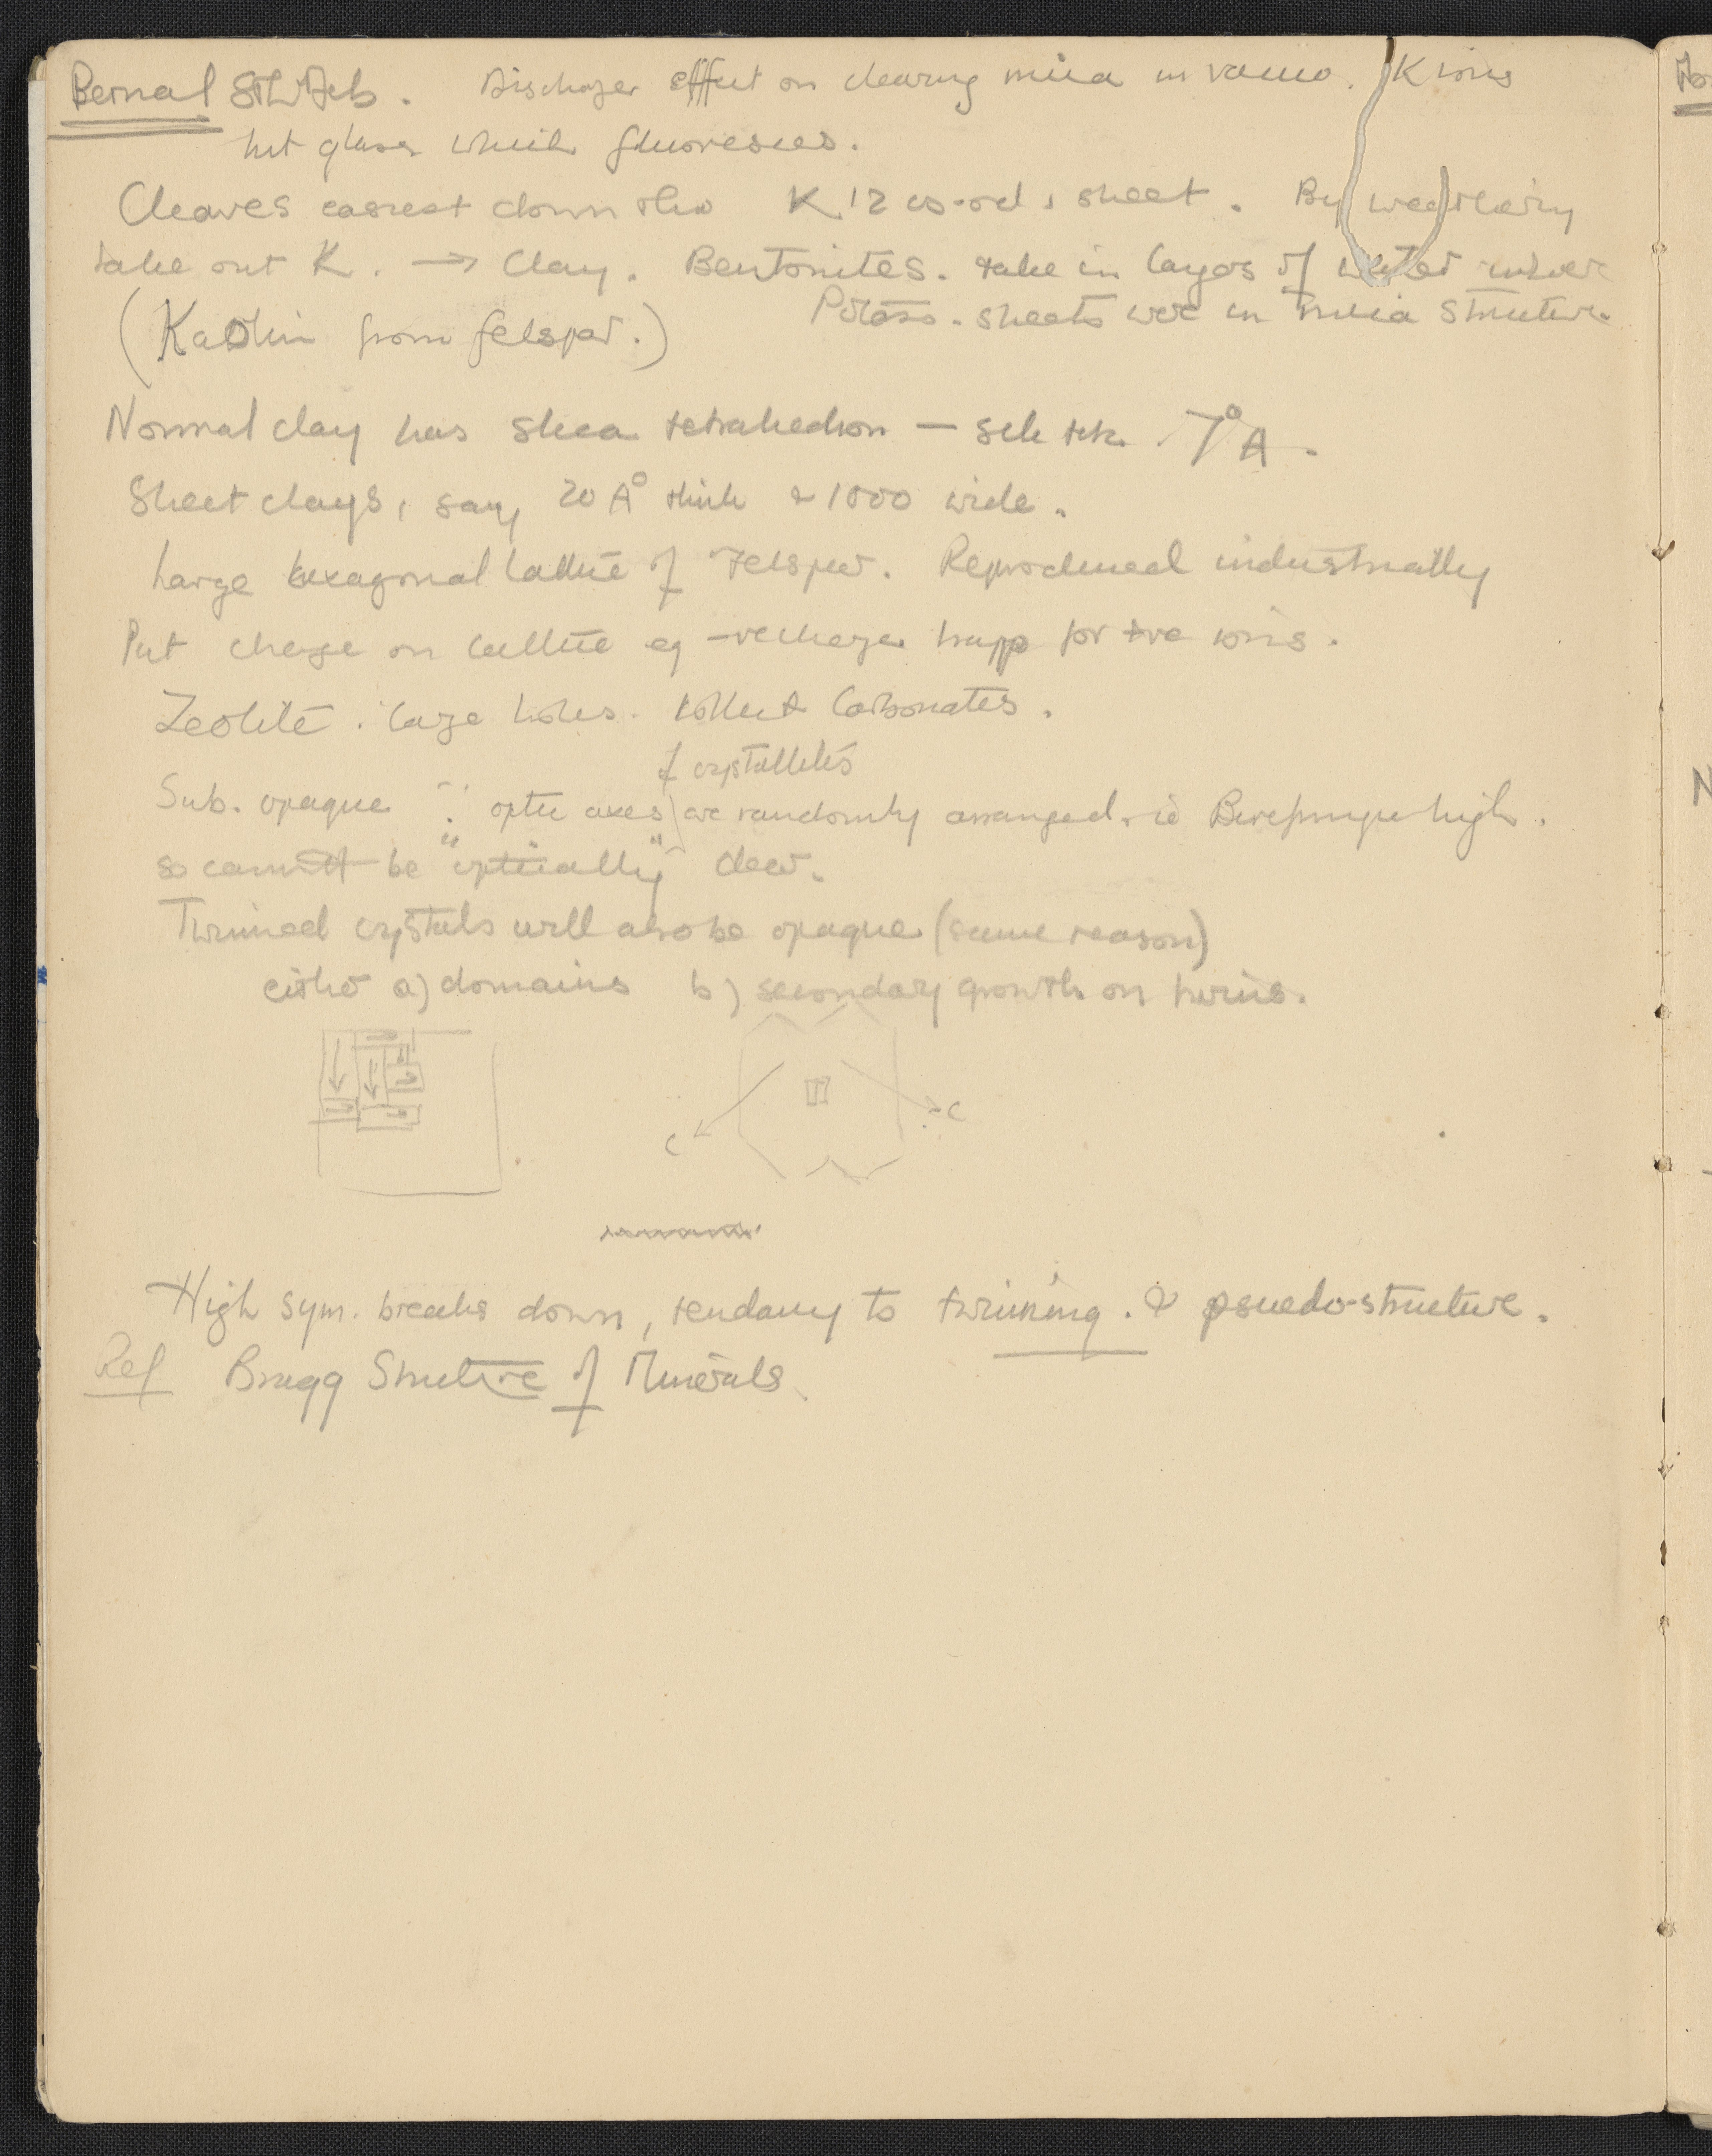 Bernal 8th Feb. Discharge effect on cleaving mica in vacuo. K ions
hit glass which fluoresces.
Cleaves easiest down the K 12 co-ord. sheet. By weathering
take out K. → Clay. Bentonites. take in layers of water where
Potass. sheets were in mica structure.
(Kaolin from felspar.)
Normal clay has tetrahedron — 7°A.
Sheet clays, say 20 A° thick & 1000 wide.
Large hexagonal lattice of Felspar. Reproduced industrially
Put charge on lattice eg -ve charge trapp for +ve ions.
Zeolite. large holes. collect Carbonates.
of crystallites
Sub. opaque ∵ optic axes are randomly arranged. ie Birefringe high.
so cannot be "optically" clear.
Twinned crystals will also be opaque (same reason)
either a) domains b) secondary growth on twins.
c c
High sym. breaks down, tendancy to twinning. & psuedo-structure.
Ref Bragg Structure of Minerals.